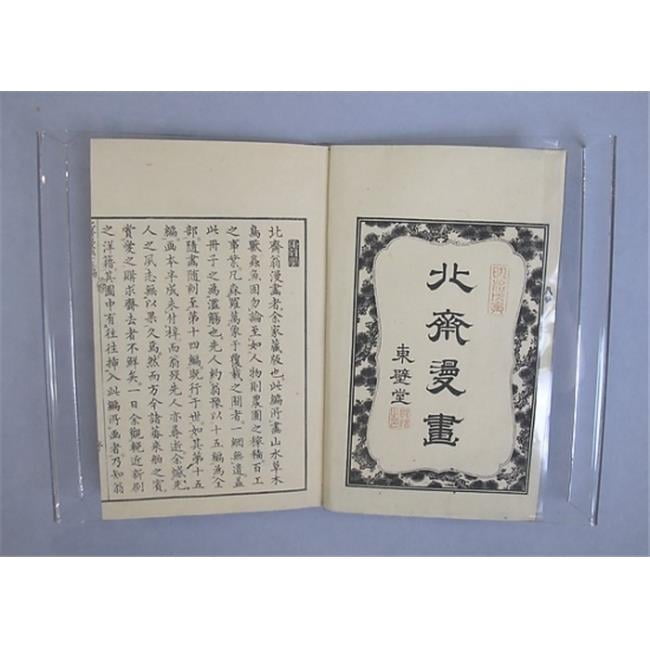 北斎漫畫
東壁堂
北齋翁漫畫者余家藏版也此編所畫山水草木
鳥獸蟲魚固勿論至如人物則農圃之稼穡百工
之事業凡森羅萬象于覆載之間者一網無遺蓋
此冊子之為濫觴也先人約翁豫以十五編為全
部隨畫隨刻至第十四編既行于世如其第十五
編画本半成未付梓而翁歿先人亦尋逝余緘先
人之夙志無以果久焉然而方今諸蕃来舶之賓
賞愛之購求齎去者不鮮矣一日余觀輓近新刷
之洋籍其圖中有往往挿入此編所画者乃知翁